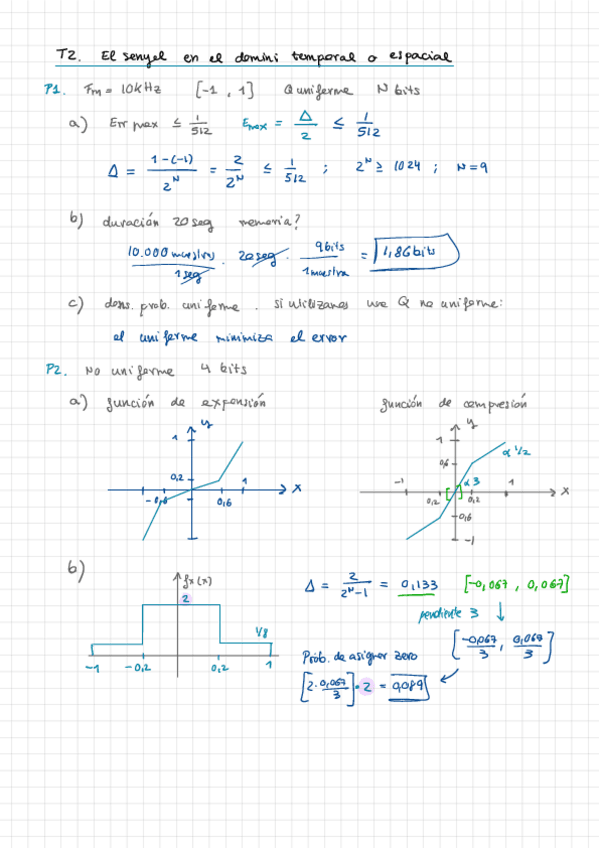 T2. El senyal en el domini temporal o espacial
P1. Fm = 10kHz [-1, 1] Q uniforme N bits
a) Err max ≤ 1/512 Emax = Δ/2 ≤ 1/512
Δ = 1-(-1)/2^N = 2/2^N ≤ 1/512 ; 2^N ≥ 1024 ; N=9
b) duración 20 seg memoria?
10.000 muestras/1 seg · 20 seg · 9 bits/1 muestra = 1,86 bits
c) dens. prob. uniforme. si utilizamos una Q no uniforme:
el uniforme minimiza el error
P2. No uniforme 4 bits
a) función de expansión función de compresión
y
1
0,2
-0,6
0,6
1
x
y
1
0,6
α 1/2
α 3
-1
0,2
0,2
1
x
-0,6
-1
b)
fx(x)
2
1/8
-1 -0,2 0,2 1
Δ = 2/2^N-1 = 0,133 [-0,067, 0,067]
pendiente 3
[-0,067/3, 0,067/3]
Prob. de asignar zero
[2·0,067/3]·2 = 0,089